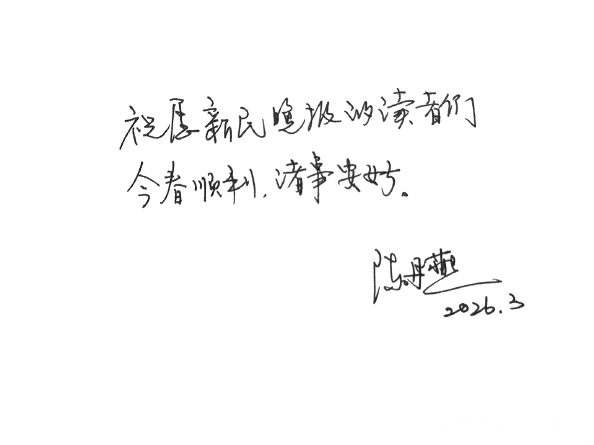 祝愿新民晚报的读者们
今春顺利，诸事安好。
陈丹燕
2026.3